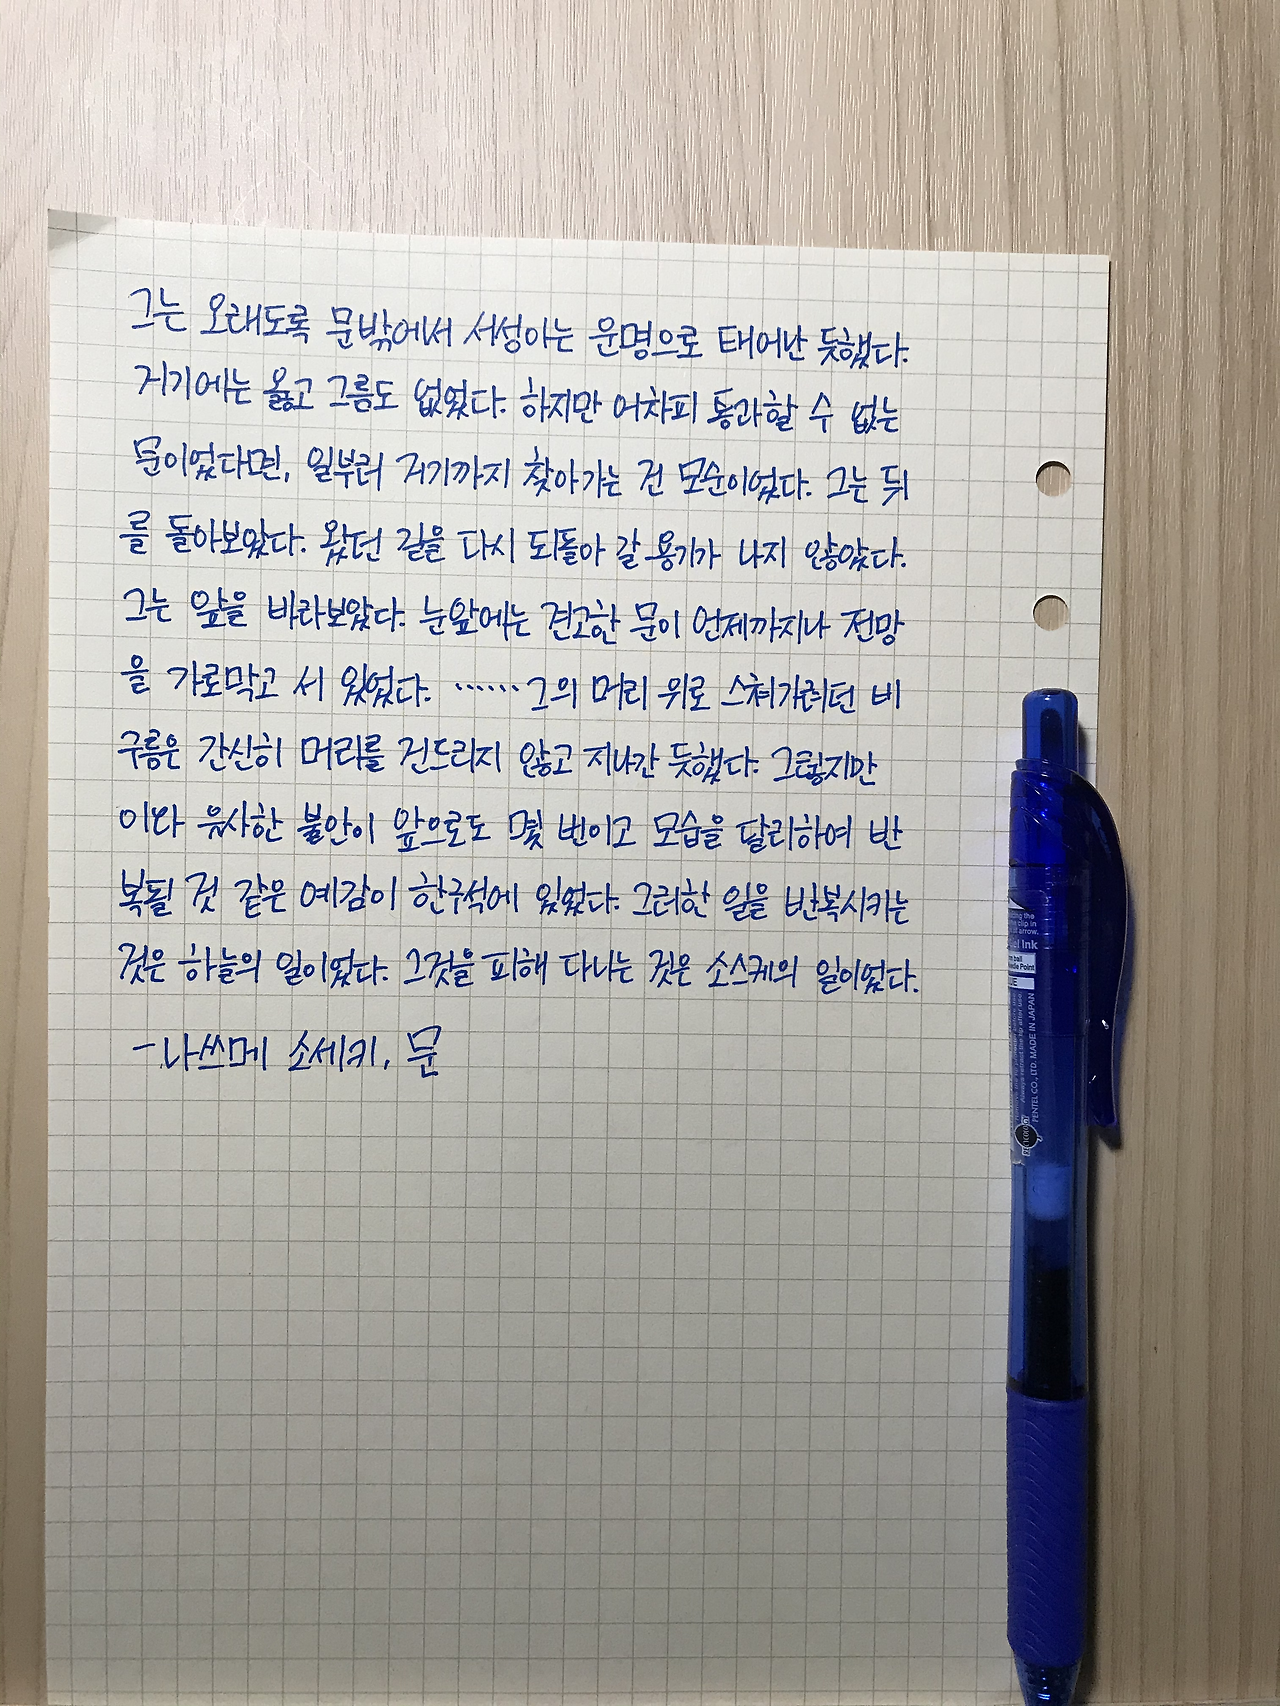 그는 오래도록 문밖에서 서성이는 운명으로 태어난 듯했다.
거기에는 옳고 그름도 없었다. 하지만 어차피 통과할 수 없는
문이었다면, 일부러 거기까지 찾아가는 건 모순이었다. 그는 뒤
를 돌아보았다. 왔던 길을 다시 되돌아 갈 용기가 나지 않았다.
그는 앞을 바라보았다. 눈앞에는 견고한 문이 언제까지나 전망
을 가로막고 서 있었다. ······그의 머리 위로 스쳐가려던 비
구름은 간신히 머리를 건드리지 않고 지나간 듯했다. 그렇지만
이와 유사한 불안이 앞으로도 몇 번이고 모습을 달리하여 반
복될 것 같은 예감이 한구석에 있었다. 그러한 일을 반복시키는
것은 하늘의 일이었다. 그것을 피해 다니는 것은 소스케의 일이었다.
-나쓰메 소세키, 문
Gel Ink
Needle Point
PENTEL CO., LTD. MADE IN JAPAN